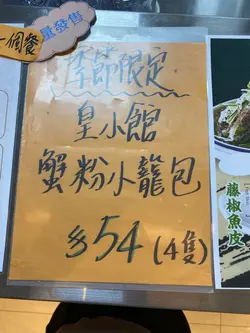 一個餐
量發售
季節限定
皇小館
蟹粉小籠包
$54(4隻)
藤椒魚皮